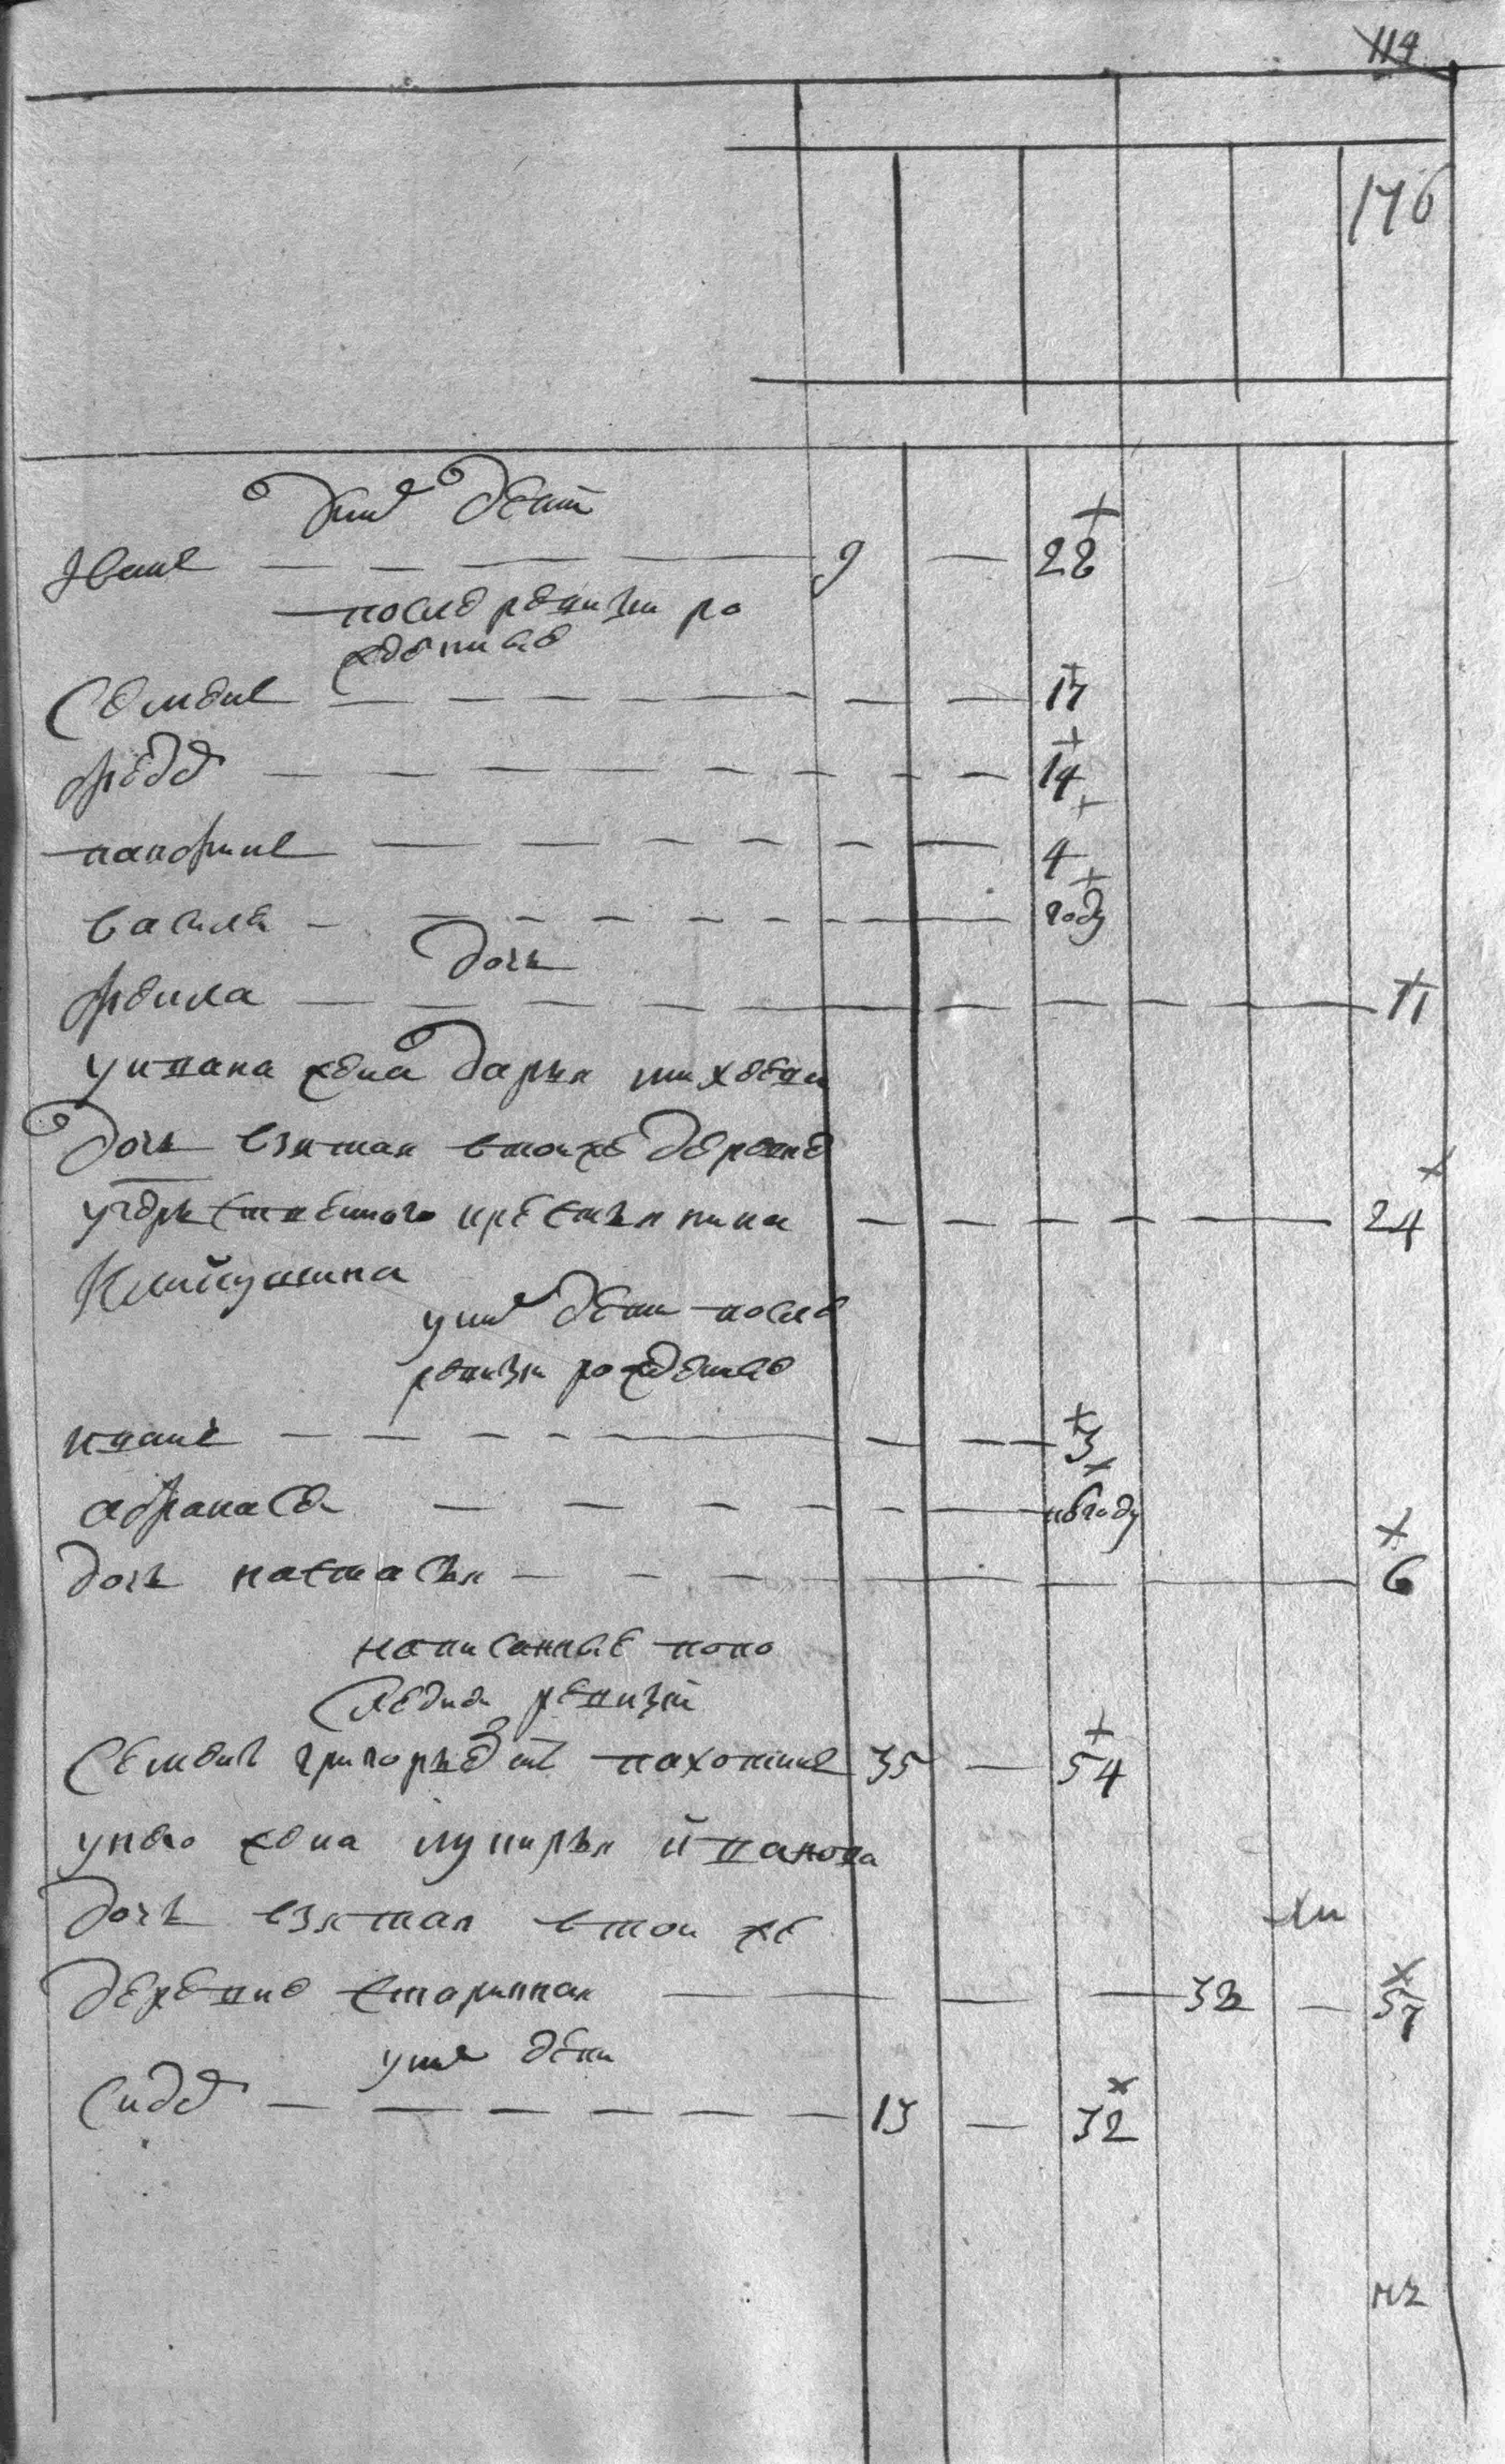 119
176
у них дети
Иванъ — 9 — 28
после ревизи ро
жденные
Семенъ — 17
Федоръ — 14
панфилъ — 4
василей — году
дочь
Фекла — 11
уивана жена дарья михеева
дочь взятая втойже деревне
крестьянина — 24
у них дети после
ревизи рожденные
иванъ — 3
афанасей — полгоду
дочь настасья — 6
написанные попо
следней ревизии
Семенъ григорьевъ пахотинъ 35 — 54
унево жена лукирья иванова
дочь взятая втой же
деревне старинная — 32 — 57
у них дети
Сидоръ — 13 — 32